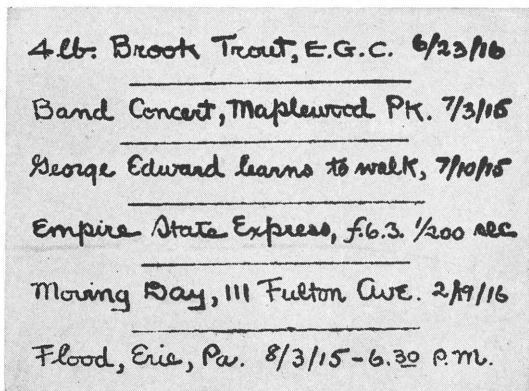 4 lb. Brook Trout, E.G.C. 6/23/16
Band Concert, Maplewood Pk. 7/3/15
George Edward learns to walk, 7/10/15
Empire State Express, f.6.3. 1/200 sec
Moving Day, 111 Fulton Ave. 2/19/16
Flood, Erie, Pa. 8/3/15-6.30 P.M.